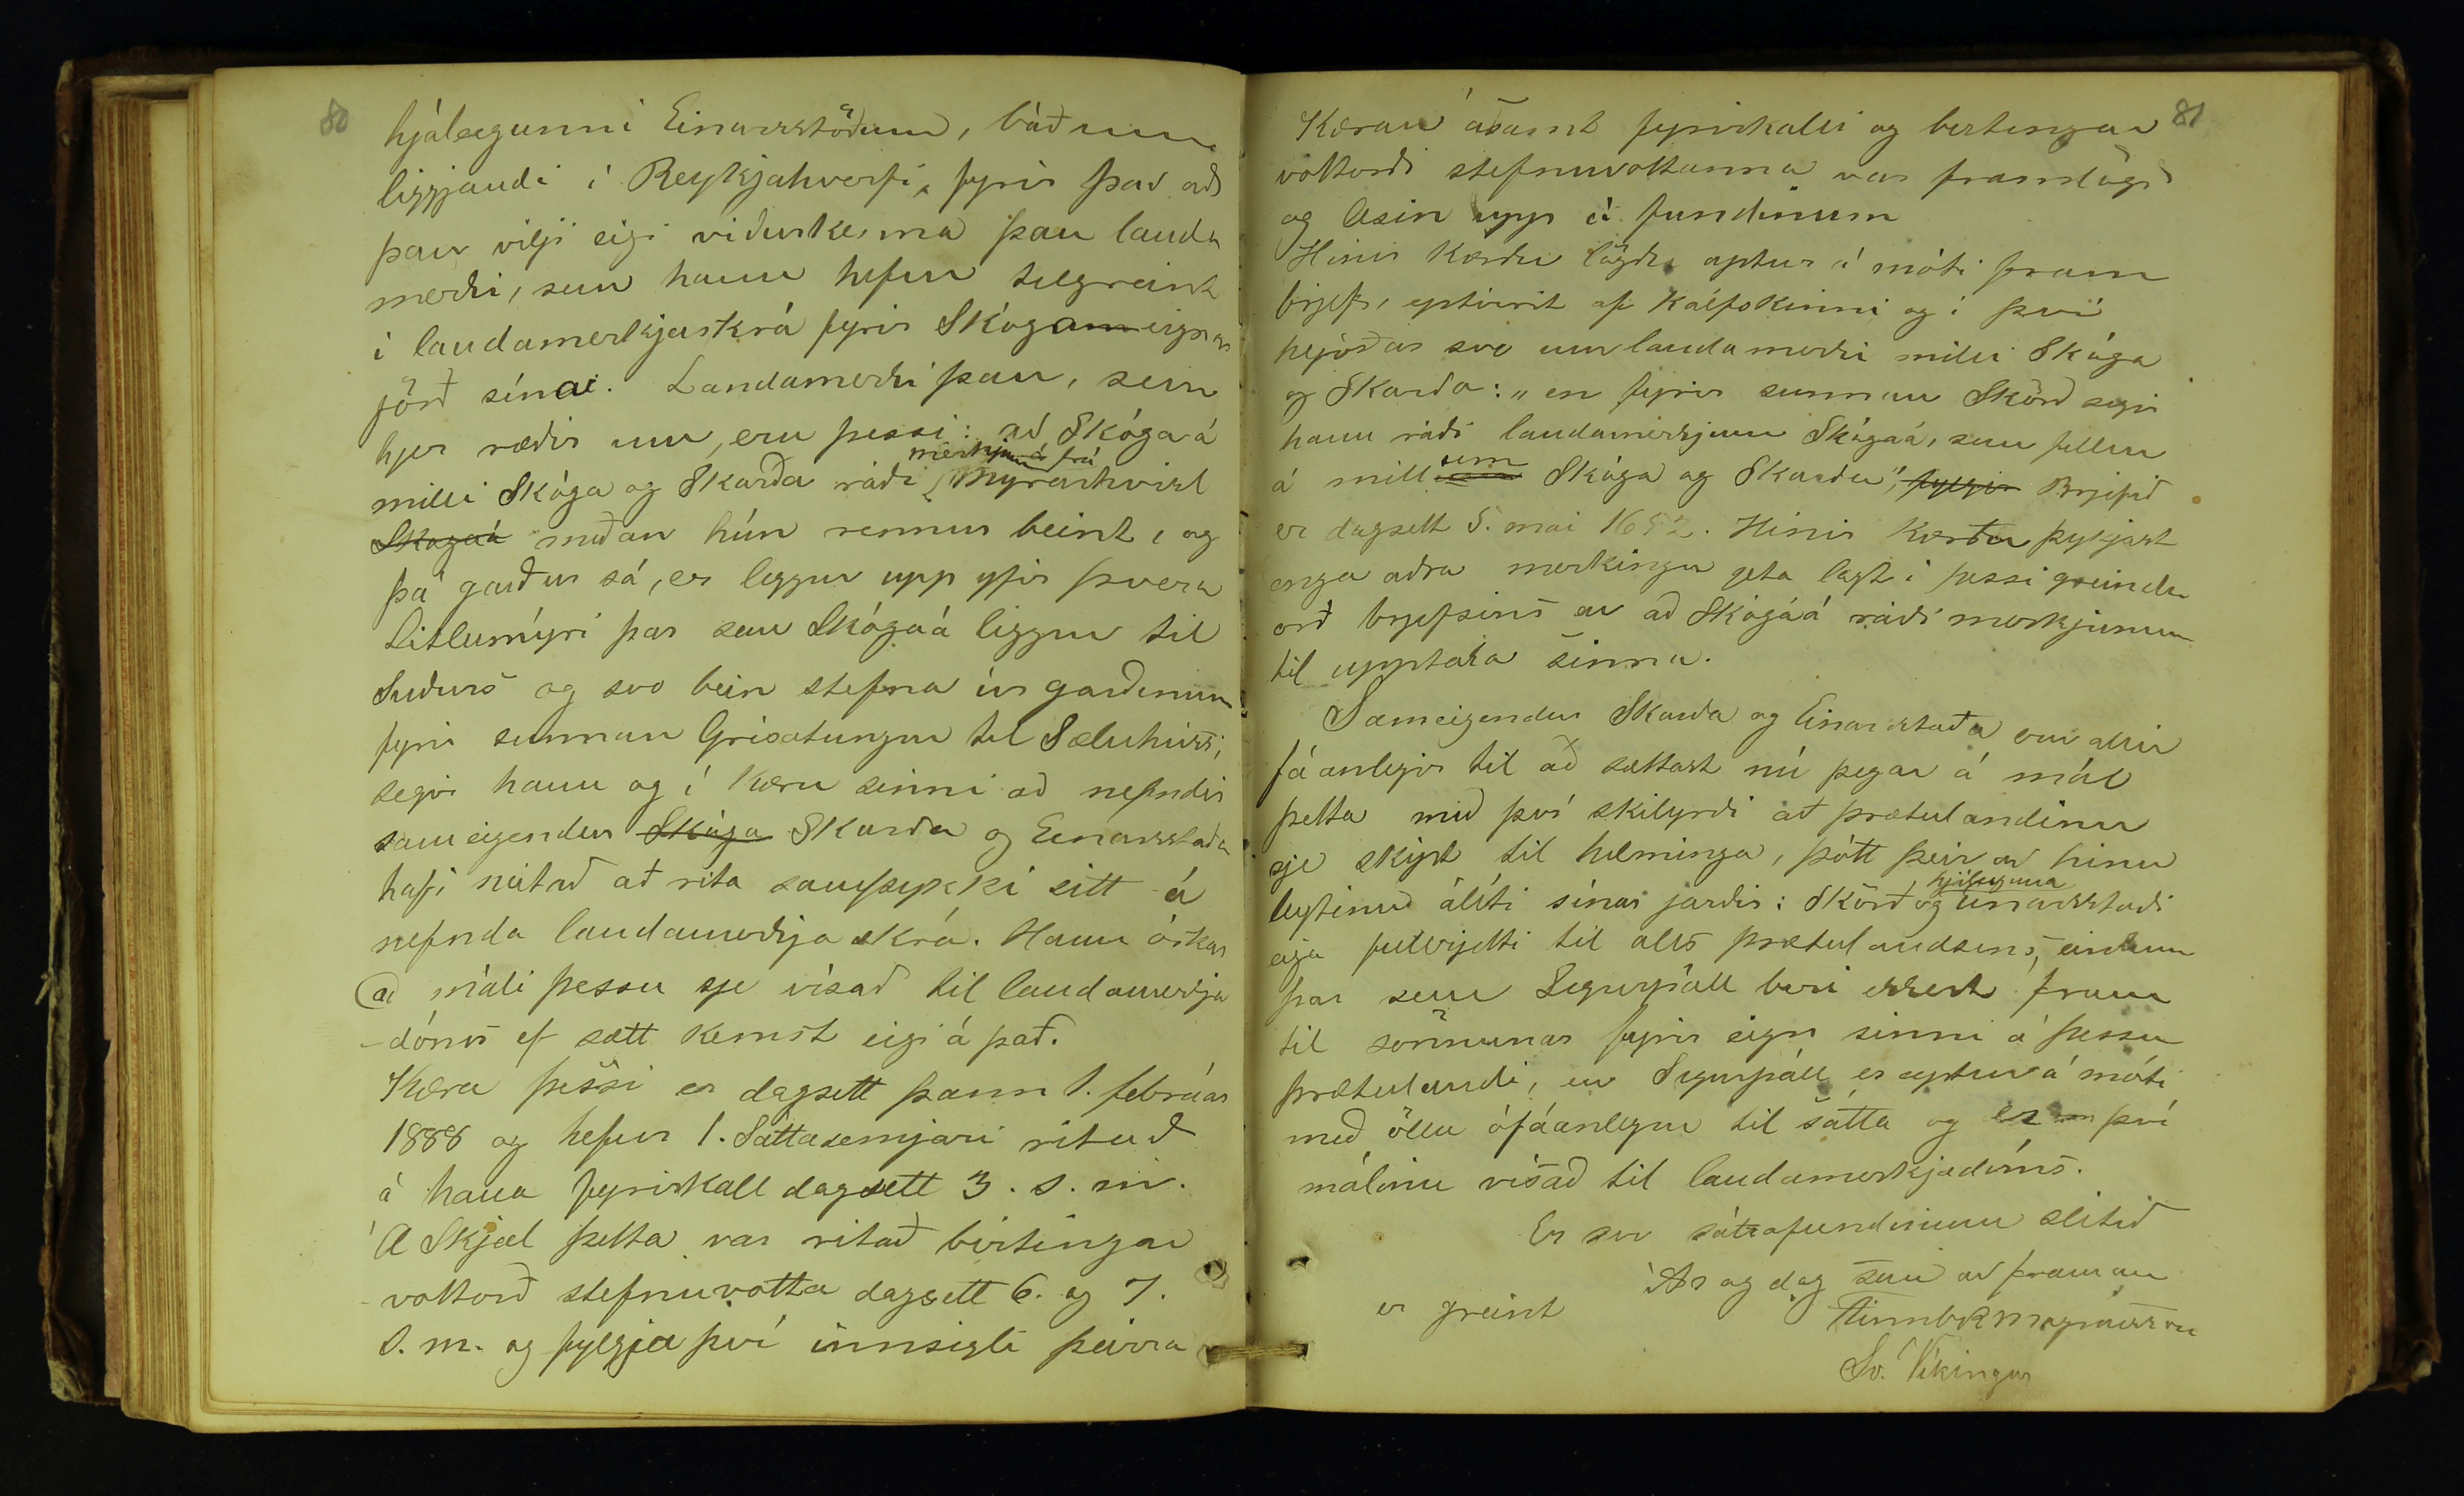 80
hjáleigunni Einarsstöðum, báðum
liggjandi í Reykjahverfi, fyrir það að
þau vilji eigi viðurkenna þau landa
merki, sem hann hefur tilgreint
í landamerkjaskrá fyrir Skógam eignar
jörð sína. Landamerki þau, sem
hjer ræðir um, eru þessi: að Skógaá
merkjum frá
milli Skóga og Skarða ráði Mýrarkvísl
Skógaá meðan hún rennur beint, og
þá garður sá, er liggur upp yfir þvera
Litlumýri þar sem Skógaá liggur til
Suðurs og svo bein stefna úr garðinum
fyrir sunnan Grísatungur til Sæluhúss,
segir hann og í Kæru sinni að nefndir
sameigendur Skóga Skarða og Einarsstaða
hafi neitað að rita samþykki sitt á
nefnda landamerkja skrá. Hann óskar
að máli þessu sje vísað til landamerkja
-dóms ef sætt kemst eigi á það.
Kæra þessi er dagsett þann 1. febrúar
1888 og hefur 1. Sáttasemjari ritað
á hana fyrirkall dagsett 3. s. m.
Á Skjal þetta var ritað birtingar
vottorð stefnuvotta dagsett 6. og 7.
s. m. og fylgja því innsigli þeirra
81
Kæran ásamt fyrirkalli og birtingar
vottorði stefnuvottanna var framlögð
og lesin upp á fundinum
Hinir Kærðu lögðu aptur á móti fram
brjef, eptirrit af Kálfskinni og í því
hljóðar svo um landamerki milli Skóga
og Skarða: "en fyrir sunnan Skörð segir
hann ráði landamerkjum Skógaá, sem fellur
sem
á mill Skóga og Skarða", fylgir Brjefið
er dagsett 5. mai 1652. Hinir Kærðu þykjast
enga aðra merkingu geta lagt í þessi greindu
orð brjefsins en að Skógaá ráði merkjunum
til upptaka sinna.
Sameigendur Skarða og Einarsstaða eru allir
fáanlegir til að sættast nú þegar á mál
þetta með því skilyrði að þrætulandinu
sje skipt til helminga, þótt þeir að hinu
hjáleiguna
leytinu áliti sínar jarðir: Skörð og Einarsstaði
eiga fullrjetti til alls þrætulandsins, einkum
þar sem Sigurpáll beri ekkert fram
til sönnunar fyrir eign sinni á þessu
þrætulandi, en Sigurpáll er aptur á móti
með öllu ófáanlegur til sátta og er því
málinu vísað til landamerkjadóms.
Er svo sáttafundinum slitið
Ár og dag sem að framan
er greint
Finnb R Magnússon
Sv. Víkingur